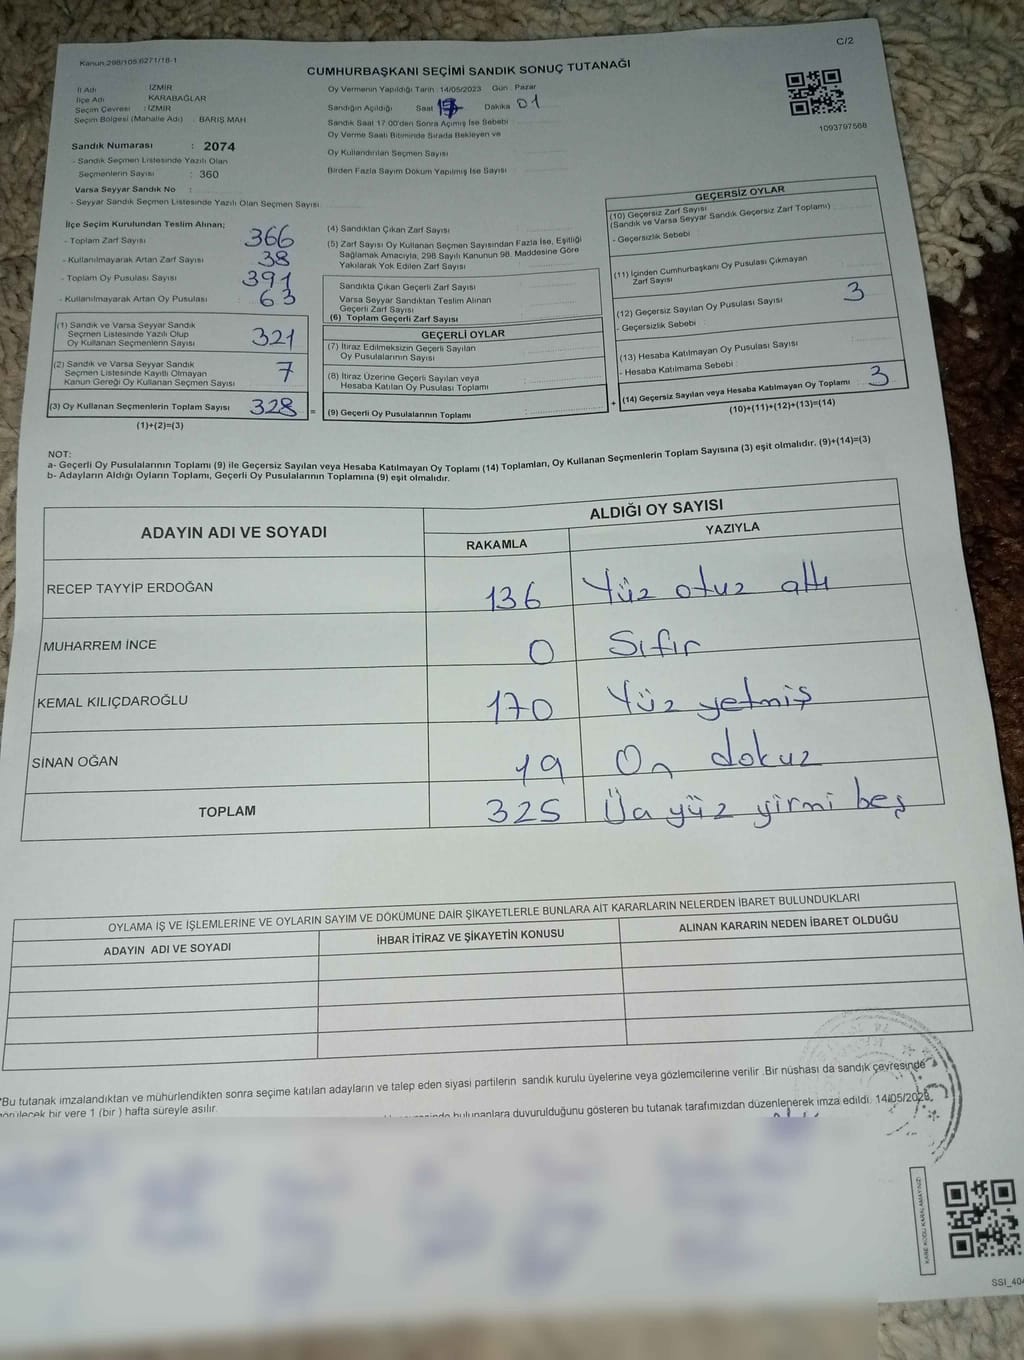 C/2
Kanun 298/105 6271/18-1
CUMHURBAŞKANI SEÇİMİ SANDIK SONUÇ TUTANAĞI
İl Adı İZMİR
İlçe Adı KARABAĞLAR
Seçim Çevresi : İZMİR
Seçim Bölgesi (Mahalle Adı) : BARIŞ MAH.
Sandık Numarası : 2074
- Sandık Seçmen Listesinde Yazılı Olan
Seçmenlerin Sayısı : 360
Varsa Seyyar Sandık No :
- Seyyar Sandık Seçmen Listesinde Yazılı Olan Seçmen Sayısı
Oy Vermenin Yapıldığı Tarih : 14/05/2023 Gün : Pazar
Sandığın Açıldığı Saat 17 Dakika 01
Sandık Saat 17:00'den Sonra Açılmış İse Sebebi
Oy Verme Saati Bitiminde Sırada Bekleyen ve
Oy Kullandırılan Seçmen Sayısı
Birden Fazla Sayım Döküm Yapılmış İse Sayısı
1093797568
İlçe Seçim Kurulundan Teslim Alınan;
- Toplam Zarf Sayısı 366
- Kullanılmayarak Artan Zarf Sayısı 38
- Toplam Oy Pusulası Sayısı 391
- Kullanılmayarak Artan Oy Pusulası 63
(1) Sandık ve Varsa Seyyar Sandık
Seçmen Listesinde Yazılı Olup
Oy Kullanan Seçmenlerin Sayısı 321
(2) Sandık ve Varsa Seyyar Sandık
Seçmen Listesinde Kayıtlı Olmayan
Kanun Gereği Oy Kullanan Seçmen Sayısı 7
(3) Oy Kullanan Seçmenlerin Toplam Sayısı 328 =
(1)+(2)=(3)
(4) Sandıktan Çıkan Zarf Sayısı
(5) Zarf Sayısı Oy Kullanan Seçmen Sayısından Fazla İse, Eşitliği
Sağlamak Amacıyla, 298 Sayılı Kanunun 98. Maddesine Göre
Yakılarak Yok Edilen Zarf Sayısı
Sandıkta Çıkan Geçerli Zarf Sayısı
Varsa Seyyar Sandıktan Teslim Alınan
Geçerli Zarf Sayısı
(6) Toplam Geçerli Zarf Sayısı
GEÇERLİ OYLAR
(7) İtiraz Edilmeksizin Geçerli Sayılan
Oy Pusulalarının Sayısı
(8) İtiraz Üzerine Geçerli Sayılan veya
Hesaba Katılan Oy Pusulası Toplamı
(9) Geçerli Oy Pusulalarının Toplamı +
GEÇERSİZ OYLAR
(10) Geçersiz Zarf Sayısı
(Sandık ve Varsa Seyyar Sandık Geçersiz Zarf Toplamı)
- Geçersizlik Sebebi
(11) İçinden Cumhurbaşkanı Oy Pusulası Çıkmayan
Zarf Sayısı
(12) Geçersiz Sayılan Oy Pusulası Sayısı 3
- Geçersizlik Sebebi
(13) Hesaba Katılmayan Oy Pusulası Sayısı
- Hesaba Katılmama Sebebi
(14) Geçersiz Sayılan veya Hesaba Katılmayan Oy Toplamı 3
(10)+(11)+(12)+(13)=(14)
NOT:
a- Geçerli Oy Pusulalarının Toplamı (9) ile Geçersiz Sayılan veya Hesaba Katılmayan Oy Toplamı (14) Toplamları, Oy Kullanan Seçmenlerin Toplam Sayısına (3) eşit olmalıdır. (9)+(14)=(3)
b- Adayların Aldığı Oyların Toplamı, Geçerli Oy Pusulalarının Toplamına (9) eşit olmalıdır.
ADAYIN ADI VE SOYADI ALDIĞI OY SAYISI
RAKAMLA YAZIYLA
RECEP TAYYİP ERDOĞAN 136 Yüz otuz altı
MUHARREM İNCE 0 Sıfır
KEMAL KILIÇDAROĞLU 170 Yüz yetmiş
SİNAN OĞAN 19 On dokuz
TOPLAM 325 yüz yirmi beş
OYLAMA İŞ VE İŞLEMLERİNE VE OYLARIN SAYIM VE DÖKÜMÜNE DAİR ŞİKAYETLERLE BUNLARA AİT KARARLARIN NELERDEN İBARET BULUNDUKLARI
ADAYIN ADI VE SOYADI İHBAR İTİRAZ VE ŞİKAYETİN KONUSU ALINAN KARARIN NEDEN İBARET OLDUĞU
*Bu tutanak imzalandıktan ve mühürlendikten sonra seçime katılan adayların ve talep eden siyasi partilerin sandık kurulu üyelerine veya gözlemcilerine verilir .Bir nüshası da sandık çevresinde
görülecek bir yere 1 (bir ) hafta süreyle asılır.
bulunanlara duyurulduğunu gösteren bu tutanak tarafımızdan düzenlenerek imza edildi. 14/05/2023
KARE KODU KARALAMAYINIZ!
SSI_404